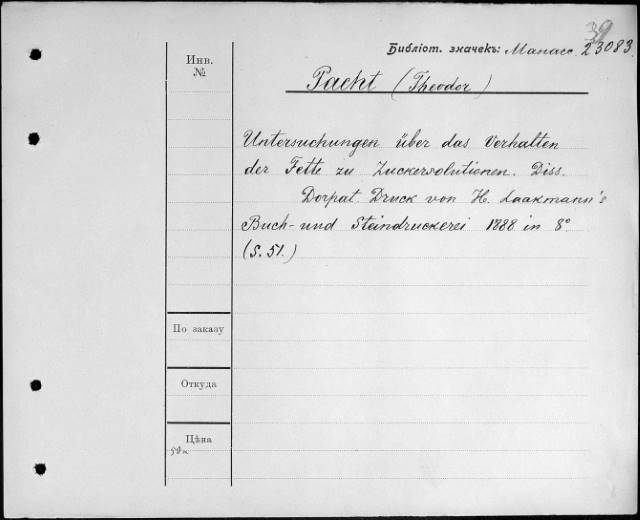 39
Библіот. значекъ: Манасс. 23083
Инв.
№
Pacht (Theodor)
Untersuchungen über das Verhalten
der Fette zu Zuckersolutionen. Diss.
Dorpat Druck von H. Laakmann's
Buch- und Steindruckerei 1888 in 8°
(S. 51.)
По заказу
Откуда
Цѣна